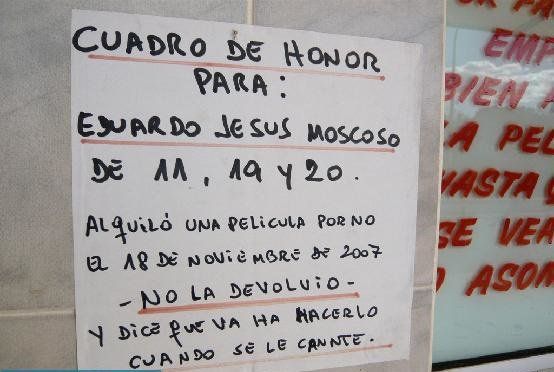 CUADRO DE HONOR
PARA:
EDUARDO JESUS MOSCOSO
DE 11, 19 Y 20.
ALQUILÓ UNA PELICULA PORNO
EL 18 DE NOVIEMBRE DE 2007
- NO LA DEVOLVIO -
Y DICE QUE VA HA HACERLO
CUANDO SE LE CANNTE.
EMP
BIEN A
A PEL
HASTA
SE VEA
ASOM